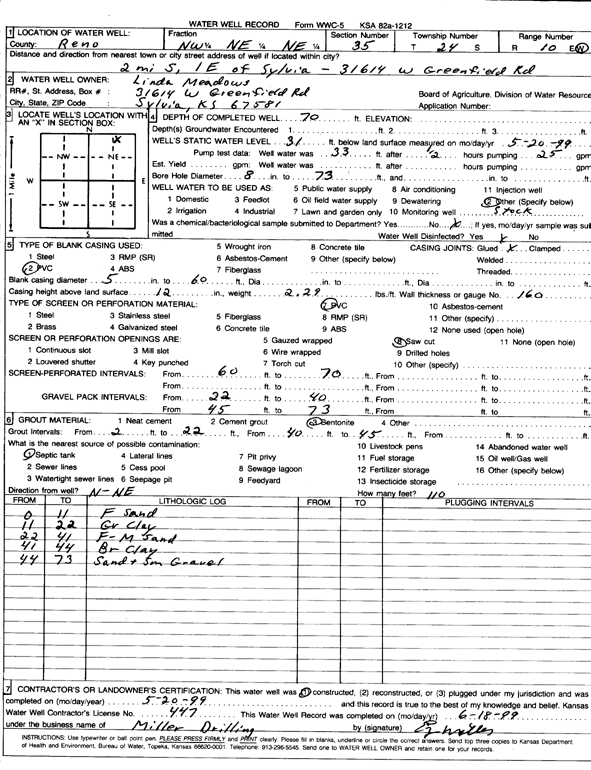 WATER WELL RECORD Form WWC-5 KSA 82a-1212
1 LOCATION OF WATER WELL: Fraction Section Number Township Number Range Number
County: Reno NW ¼ NE ¼ NE ¼ 35 T 24 S R 10 E/W
Distance and direction from nearest town or city street address of well if located within city?
2 mi S, 1E of Sylvia - 31614 W Greenfield Rd
2 WATER WELL OWNER: Linda Meadows
RR#, St. Address, Box # : 31614 W Greenfield Rd Board of Agriculture, Division of Water Resource
City, State, ZIP Code : Sylvia, KS 67581 Application Number:
3 LOCATE WELL'S LOCATION WITH AN "X" IN SECTION BOX:
N
X
NW NE
1 Mile W E
SW SE
S
4 DEPTH OF COMPLETED WELL 70 ft. ELEVATION:
Depth(s) Groundwater Encountered 1 ft. 2 ft. 3 ft.
WELL'S STATIC WATER LEVEL 31 ft. below land surface measured on mo/day/yr 5-20-99
Pump test data: Well water was 33 ft. after 1/2 hours pumping 25 gpm
Est. Yield gpm: Well water was ft. after hours pumping gpm
Bore Hole Diameter 8 in. to 73 ft., and in. to ft.
WELL WATER TO BE USED AS: 5 Public water supply 8 Air conditioning 11 Injection well
1 Domestic 3 Feedlot 6 Oil field water supply 9 Dewatering 12 Other (Specify below)
2 Irrigation 4 Industrial 7 Lawn and garden only 10 Monitoring well Stock
Was a chemical/bacteriological sample submitted to Department? Yes No X If yes, mo/day/yr sample was sub
mitted Water Well Disinfected? Yes X No
5 TYPE OF BLANK CASING USED: 5 Wrought iron 8 Concrete tile CASING JOINTS: Glued X Clamped
1 Steel 3 RMP (SR) 6 Asbestos-Cement 9 Other (specify below) Welded
2 PVC 4 ABS 7 Fiberglass Threaded
Blank casing diameter 5 in. to 60 ft., Dia in. to ft., Dia in. to ft.
Casing height above land surface 12 in., weight 2.29 lbs./ft. Wall thickness or gauge No. 160
TYPE OF SCREEN OR PERFORATION MATERIAL: 7 PVC 10 Asbestos-cement
1 Steel 3 Stainless steel 5 Fiberglass 8 RMP (SR) 11 Other (specify)
2 Brass 4 Galvanized steel 6 Concrete tile 9 ABS 12 None used (open hole)
SCREEN OR PERFORATION OPENINGS ARE: 5 Gauzed wrapped 8 Saw cut 11 None (open hole)
1 Continuous slot 3 Mill slot 6 Wire wrapped 9 Drilled holes
2 Louvered shutter 4 Key punched 7 Torch cut 10 Other (specify)
SCREEN-PERFORATED INTERVALS: From 60 ft. to 70 ft., From ft. to ft.
From ft. to ft., From ft. to ft.
GRAVEL PACK INTERVALS: From 22 ft. to 40 ft., From ft. to ft.
From 45 ft. to 73 ft., From ft. to ft.
6 GROUT MATERIAL: 1 Neat cement 2 Cement grout 3 Bentonite 4 Other
Grout Intervals: From 2 ft. to 22 ft., From 40 ft. to 45 ft., From ft. to ft.
What is the nearest source of possible contamination: 10 Livestock pens 14 Abandoned water well
1 Septic tank 4 Lateral lines 7 Pit privy 11 Fuel storage 15 Oil well/Gas well
2 Sewer lines 5 Cess pool 8 Sewage lagoon 12 Fertilizer storage 16 Other (specify below)
3 Watertight sewer lines 6 Seepage pit 9 Feedyard 13 Insecticide storage
Direction from well? N-NE How many feet? 110
FROM TO LITHOLOGIC LOG FROM TO PLUGGING INTERVALS
0 11 F Sand
11 22 Gr Clay
22 41 F-M Sand
41 44 Br Clay
44 73 Sand + Sm Gravel
7 CONTRACTOR'S OR LANDOWNER'S CERTIFICATION: This water well was (1) constructed, (2) reconstructed, or (3) plugged under my jurisdiction and was
completed on (mo/day/year) 5-20-99 and this record is true to the best of my knowledge and belief. Kansas
Water Well Contractor's License No. 447 This Water Well Record was completed on (mo/day/yr) 6-18-99
under the business name of Miller Drilling by (signature)
INSTRUCTIONS: Use typewriter or ball point pen. PLEASE PRESS FIRMLY and PRINT clearly. Please fill in blanks, underline or circle the correct answers. Send top three copies to Kansas Department
of Health and Environment, Bureau of Water, Topeka, Kansas 66620-0001. Telephone: 913-296-5545. Send one to WATER WELL OWNER and retain one for your records.